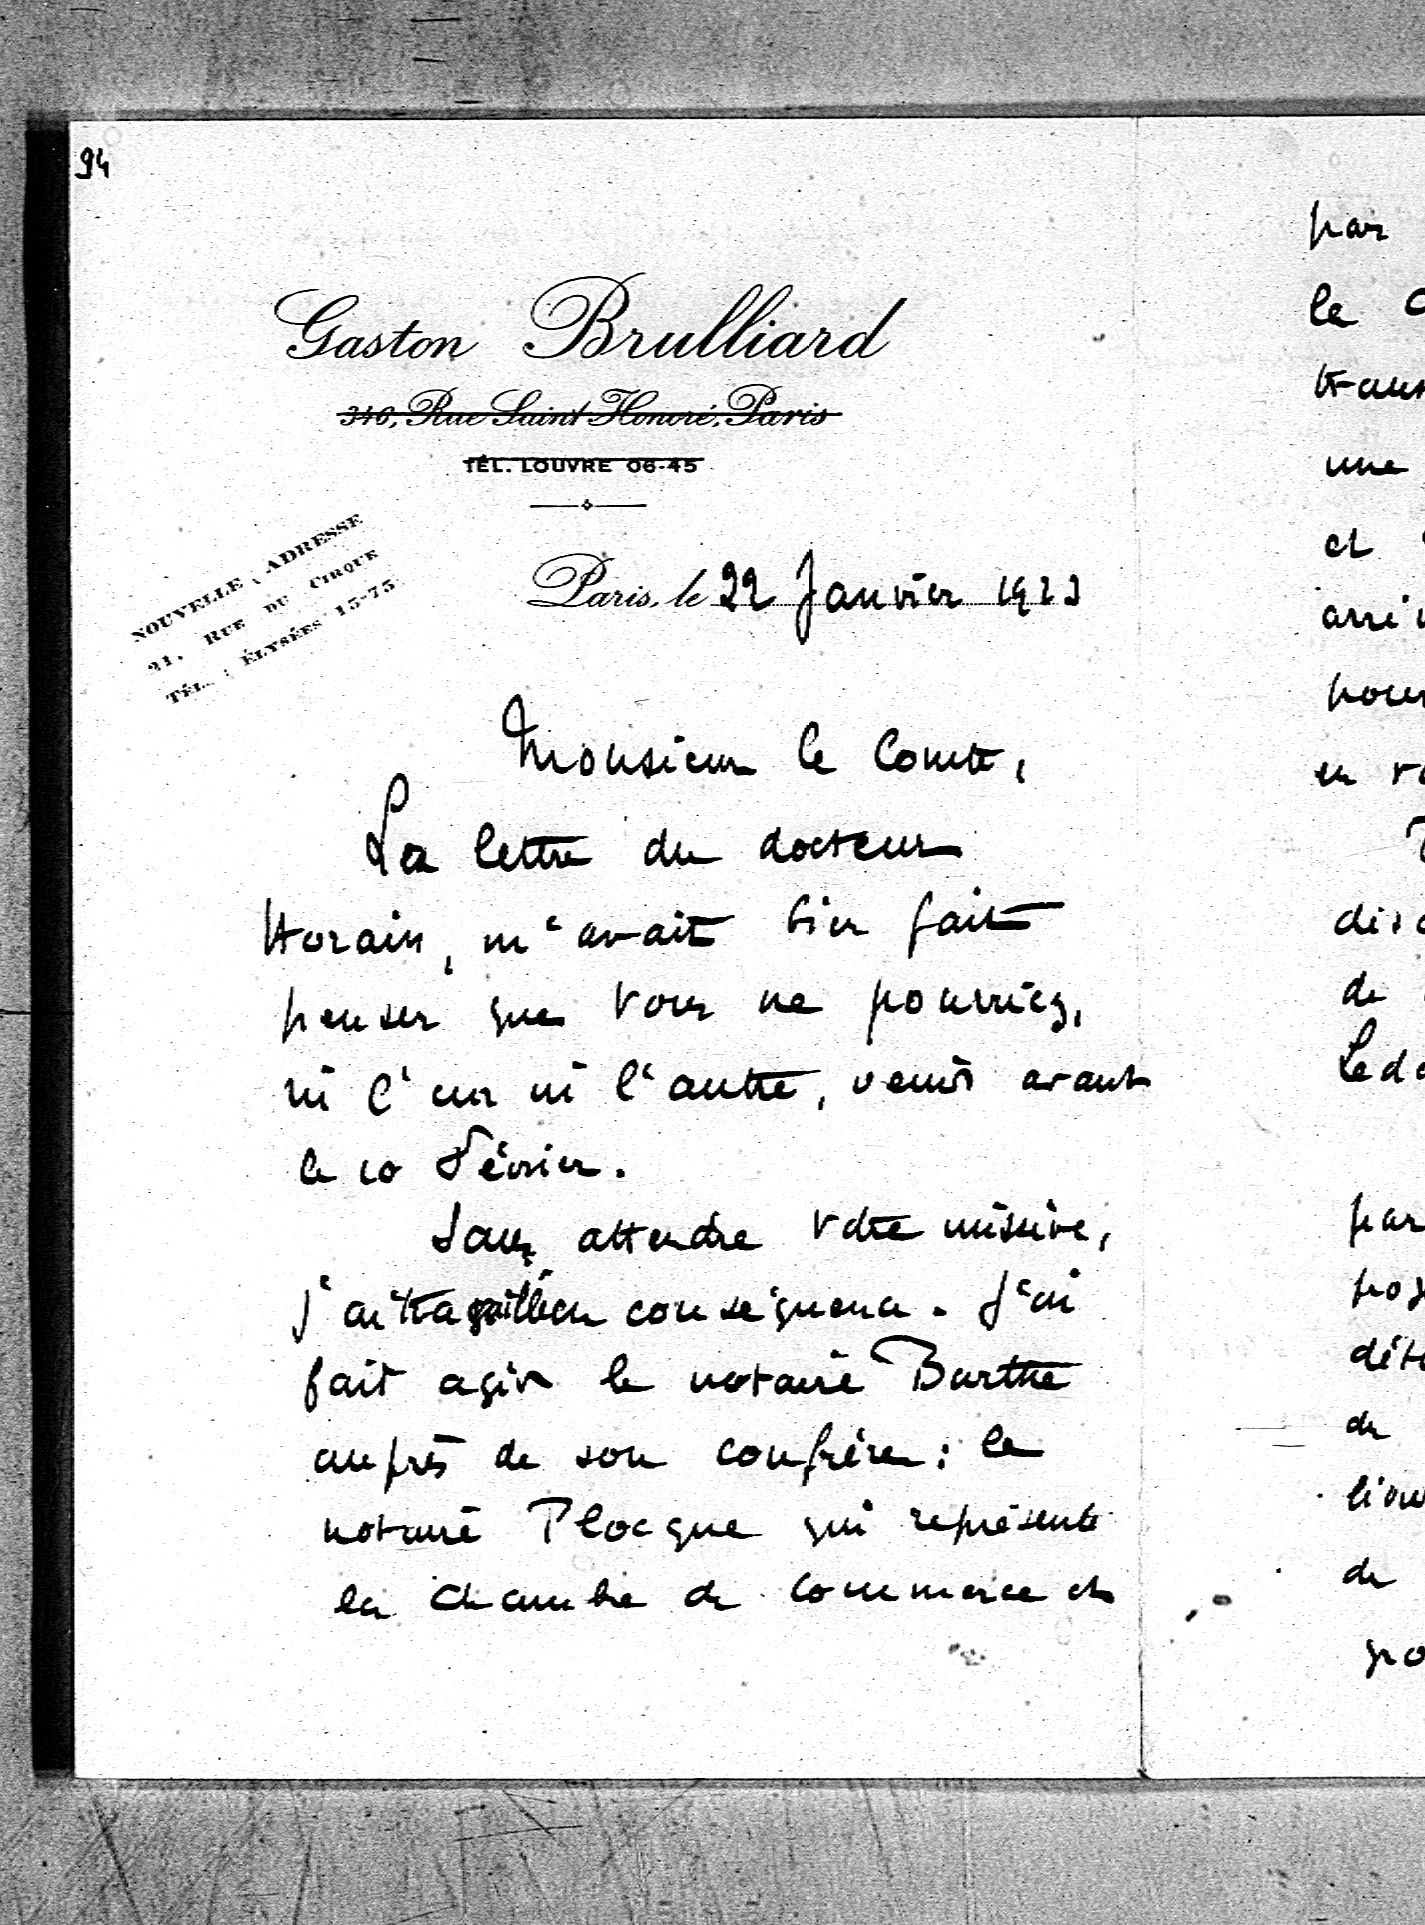 94
Gaston Brulliard
346, Rue Saint Honoré, Paris
TÉL. LOUVRE 06-45
NOUVELLE ADRESSE
21, RUE DU CIRQUE
TÉL. : ÉLYSÉES 15-75
Paris, le 22 Janvier 1923
Monsieur le Comte,
La lettre du docteur
Horain, m'avait bien fait
penser que vous ne pourriez,
ni l'un ni l'autre, venir avant
le 10 Février.
Sans attendre votre missive,
j'ai en conséquence. J'ai
fait agir le notaire Barthe
auprès de son confrère : le
notaire Plocque qui représente
la Chambre de Commerce et
par
le
une
et
en
de
par
de
de